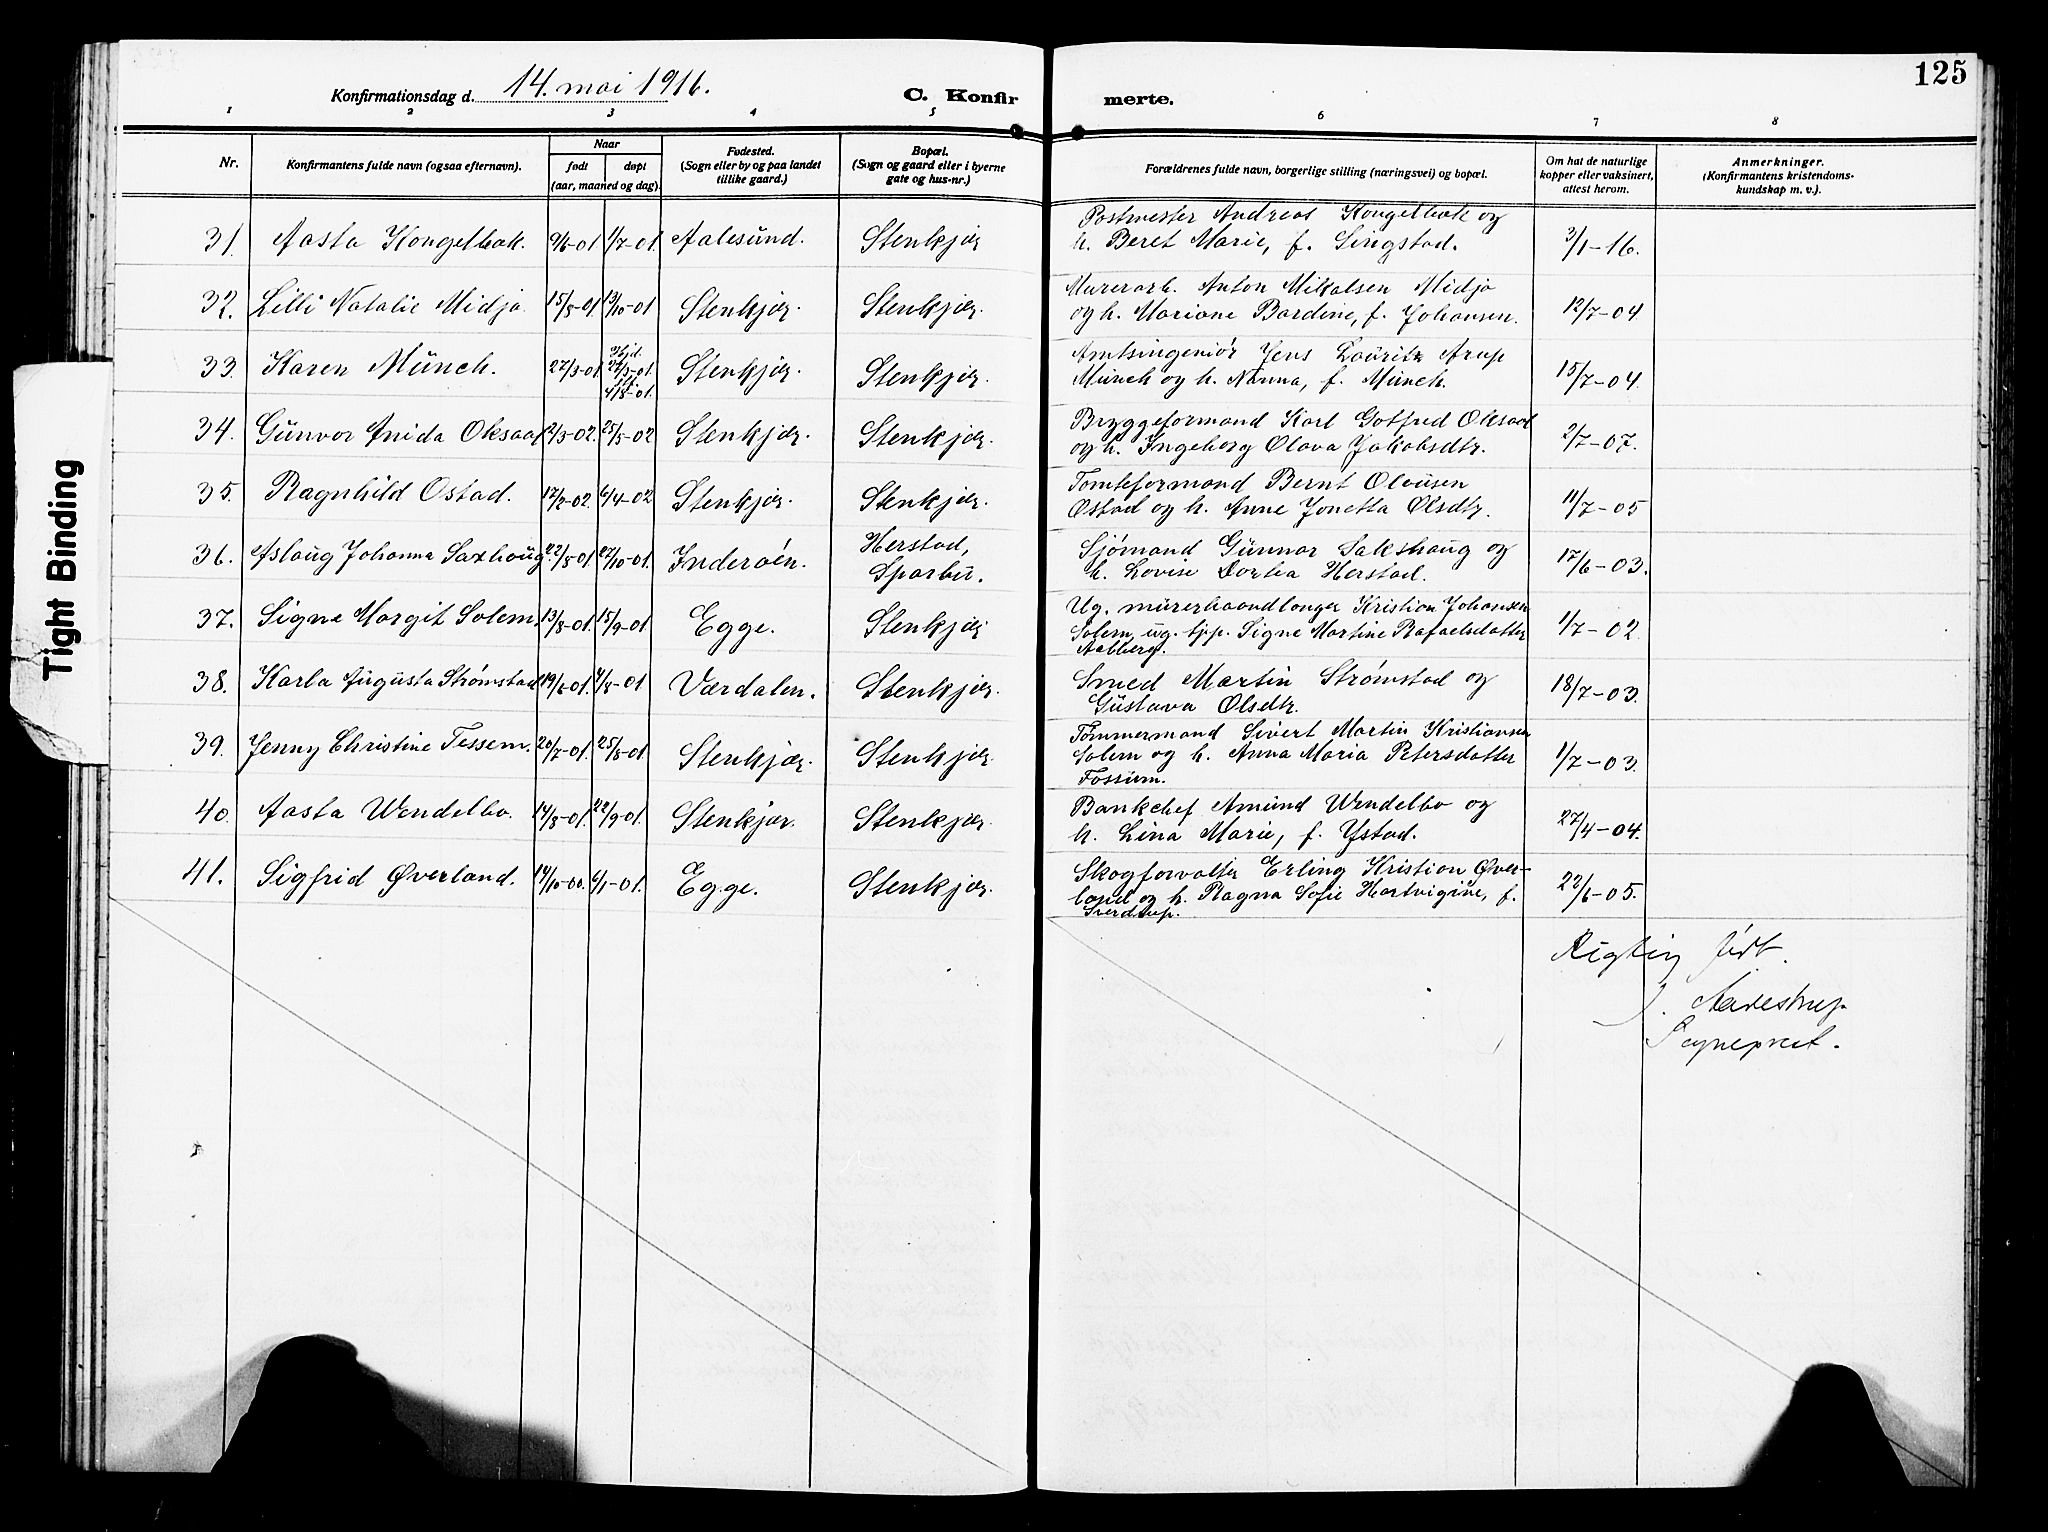 125
Konfirmationsdag d. 14. mai 1916.
C. Konfirmerte.
1 2 3 4 5 6 7 8
Nr.
Konfirmantens fulde navn (ogsaa efternavn).
Naar
født
døpt
(aar, maaned og dag).
Fødested.
(Sogn eller by og paa landet
tillike gaard.)
Bopæl.
(Sogn og gaard eller i byerne
gate og hus-nr.)
Forældrenes fulde navn, borgerlige stilling (næringsvei) og bopæl.
Om hat de naturlige
kopper eller vaksinert,
attest herom.
Anmerkninger.
(Konfirmantens kristendoms-
kundskap m. v.).
Postmester Andreas Kongelbak og
31. Aasta Kongelbak. 9/6-01 1/7-01. Aalesund. Stenkjær h. Beret Marie, f. Singstad. 3/1-16.
Murerarb. Anton Mikalsen Midjo
32. Lilli Natalie Midjo. 15/8-01. 13/10-01 Stenkjær. Stenkjær. og h. Mariane Bardine, f. Johansen. 12/7-04
Amtsingeniør Jens Lauritz Arup
33. Karen Münch. 27/3-01. Stenkjær. Stenkjær. Münch og h. Nanna, f. Münch. 15/7-04.
Bryggeformand Karl Gotfred Oksaal
34. Gunvor Anida Oksaal 12/3-02. 25/5-02 Stenkjær. Stenkjær. og h. Ingeborg Olava Jakobsdtr. 2/7-07.
Tomteformand Bernt Olausen
35. Ragnhild Østad. 17/2-02. 6/4-02 Stenkjær. Stenkjær. Østad og h. Anne Jonetta Olsdtr. 11/7-05
36. Aslaug Johanna Saxhaug. 22/8-01. 27/10-01. Inderøen. Herstad,
Sparbu.
Sjømand Gunnar Sakshaug og
h. Lovise Dortea Herstad. 17/6-03.
Ug. murerhaandlanger Kristian Johansen
37. Signe Margit Solem. 13/8-01. 15/9-01 Egge. Stenkjær Solem, ug. tjp. Signe Martine Rafaelsdatter 1/7-02.
Aalberg.
38. Karla Augusta Strømstad 19/6-01. 4/8-01 Værdalen. Stenkjær. Smed Martin Strømstad og 18/7-03.
Gustava Olsdtr.
Tømmermand Sivert Martin Kristiansen
39. Jenny Christine Tessem. 20/7-01. 25/8-01. Stenkjær. Stenkjær. Solem og h. Anna Maria Petersdatter 1/7-03.
Fossum.
40. Aasta Wendelbo. 14/8-01. 22/9-01. Stenkjær. Stenkjær. Bankchef Amund Wendelbo og
h. Lina Marie, f. Ystad. 27/4-04.
41. Sigfrid Øverland. 14/10-00. 6/1-01. Egge. Stenkjær. Skogforvalter Erling Kristian Øver-
land og h. Ragna Sofie Hartvigine, f. 22/6-05.
Sverdrup.
Rigtig ført.
J. Aarestrup.
Sogneprest.
Tight Binding